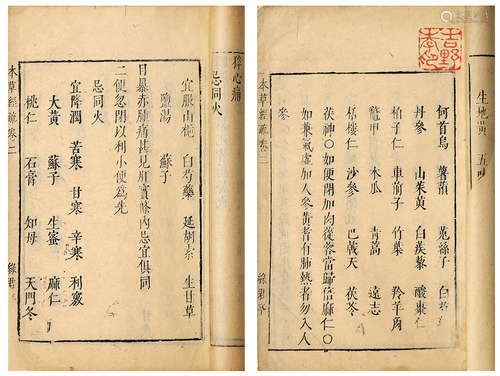 生地黃 五
何首烏 薯蕷 菟絲子 白芍
丹參 山茱萸 白蒺藜 酸棗仁
柏子仁 車前子 竹葉 羚羊角
鱉甲 木瓜 青蒿 遠志
栝樓仁 沙參 巴戟天 茯苓
茯神○如便閉加肉蓯蓉當歸倍麻仁○
如兼氣虛加人參黃耆有肺熱者勿入人
參
本草經疏卷二 綠君亭
猝心痛
忌同火
宜服山梔 白芍藥 延胡索 生甘草
鹽湯 蘇子
目暴赤腫痛甚見肝實條內忌宜俱同
二便忽閉以利小便為先
忌同火
宜降潤 苦寒 甘寒 辛寒 利竅
大黃 蘇子 生蜜 麻仁
桃仁 石膏 知母 天門冬
本草經疏卷二 綠君